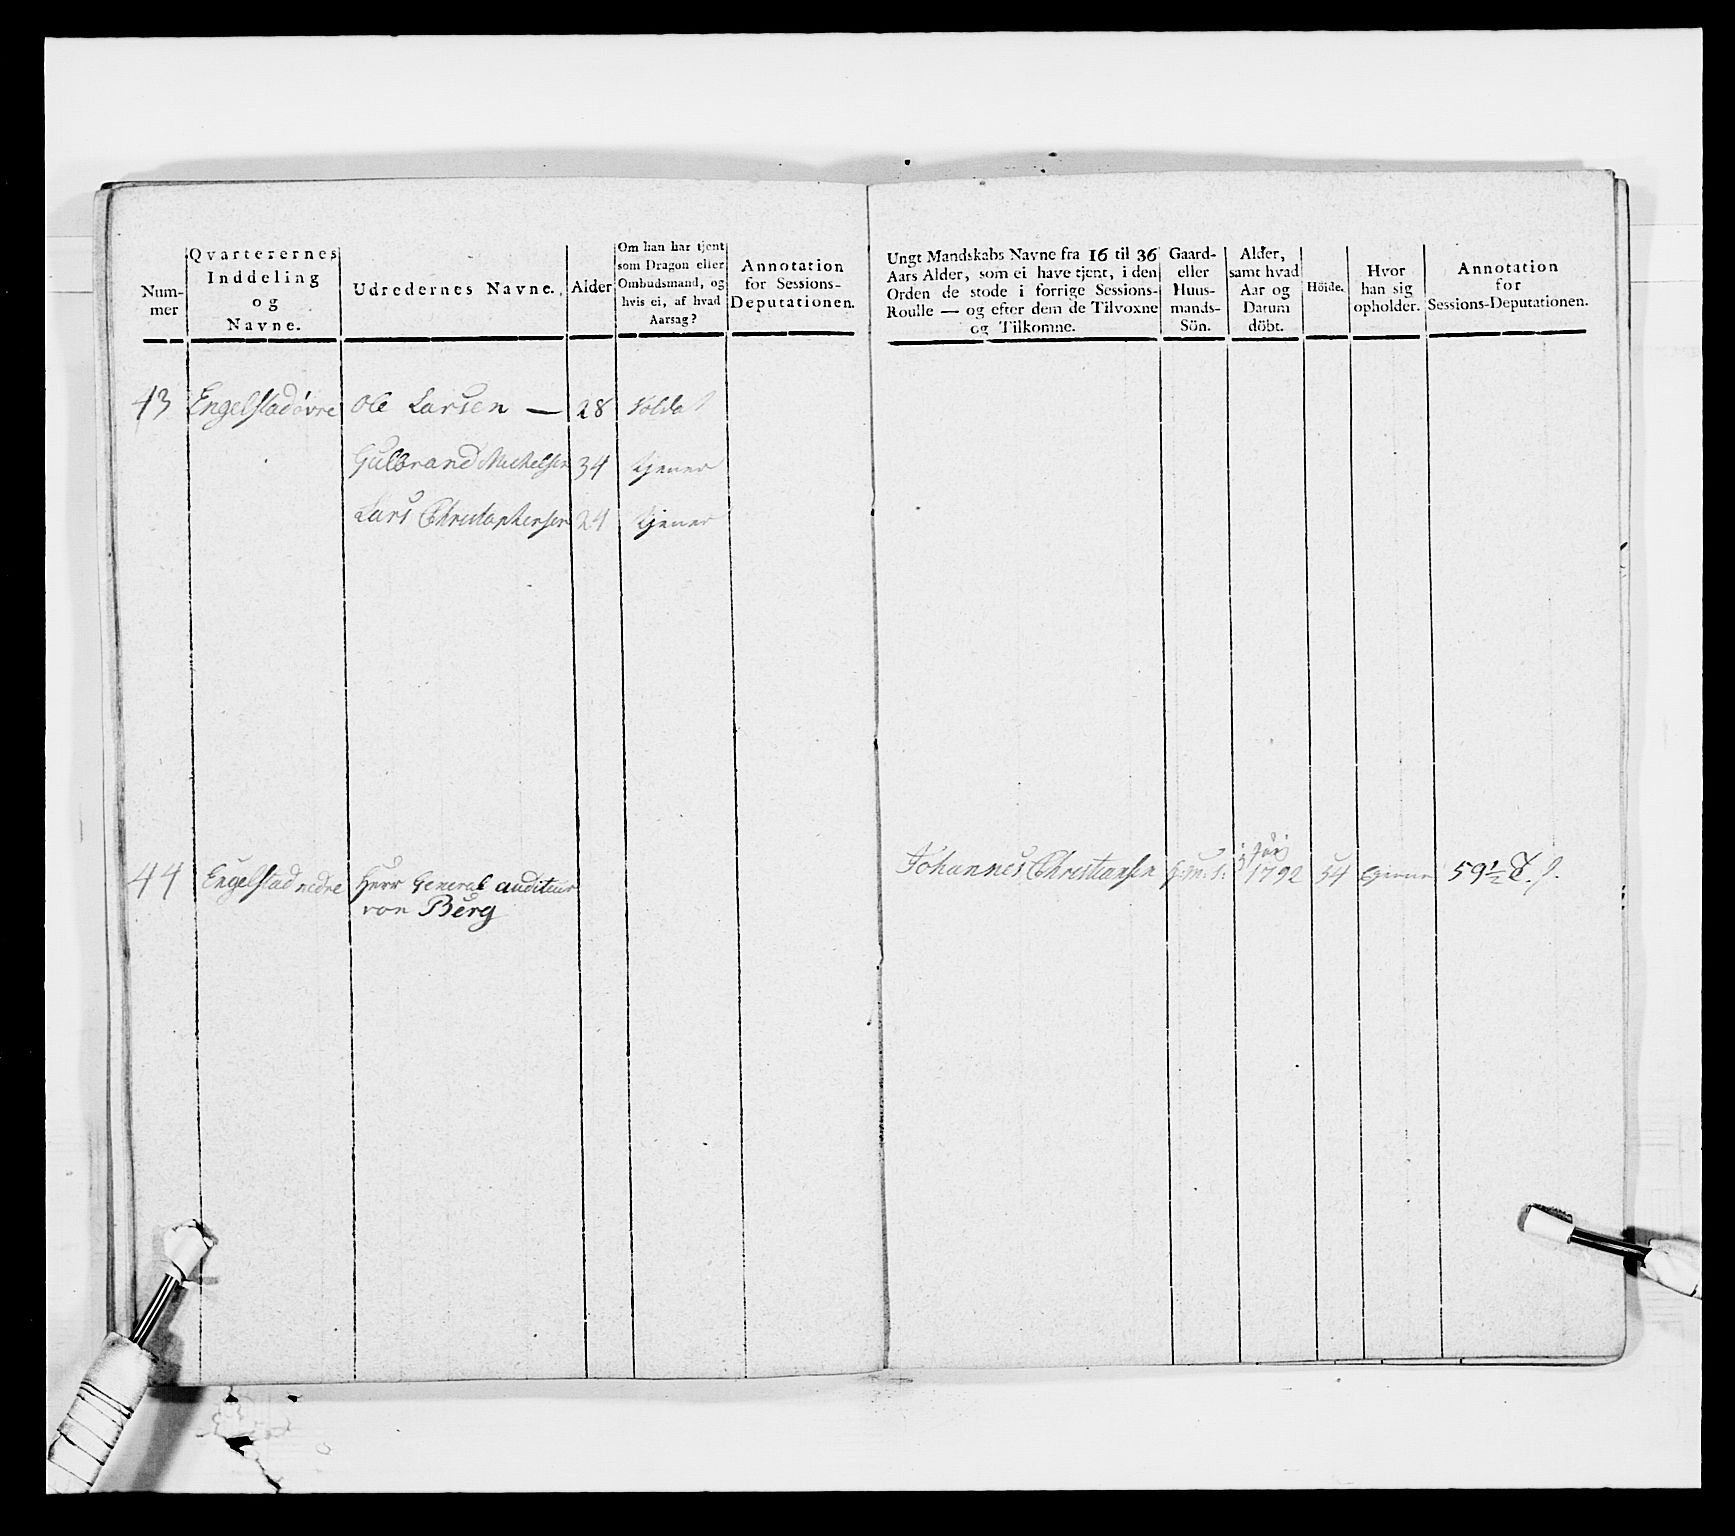 Num-
mer
Qvarterernes
Inddeling
og
Navne.
Udredernes Navne.
Alder
Om han har tjent
som Dragon eller
Ombudsmand, og
hvis ei, af hvad
Aarsag?
Annotation
for Sessions-
Deputationen.
Ungt Mandskabs Navne fra 16 til 36
Aars Alder, som ei have tjent, i den
Orden de stode i forrige Sessions-
Roulle — og efter dem de Tilvoxne
og Tilkomne.
Gaard-
eller
Huus-
mands-
Sön.
Alder,
samt hvad
Aar og
Datum
döbt.
Höide.
Hvor
han sig
opholder.
Annotation
for
Sessions-Deputationen.
43 Engelstad øvre Ole Larsen — 28 Soldat
Gulbrand Michelsen 34 tjener
Lars Christophersen 24 tjener
44 Engelstad nedre Herr General auditeur
von Berg
Johannes Christiansen 1792 54 59½